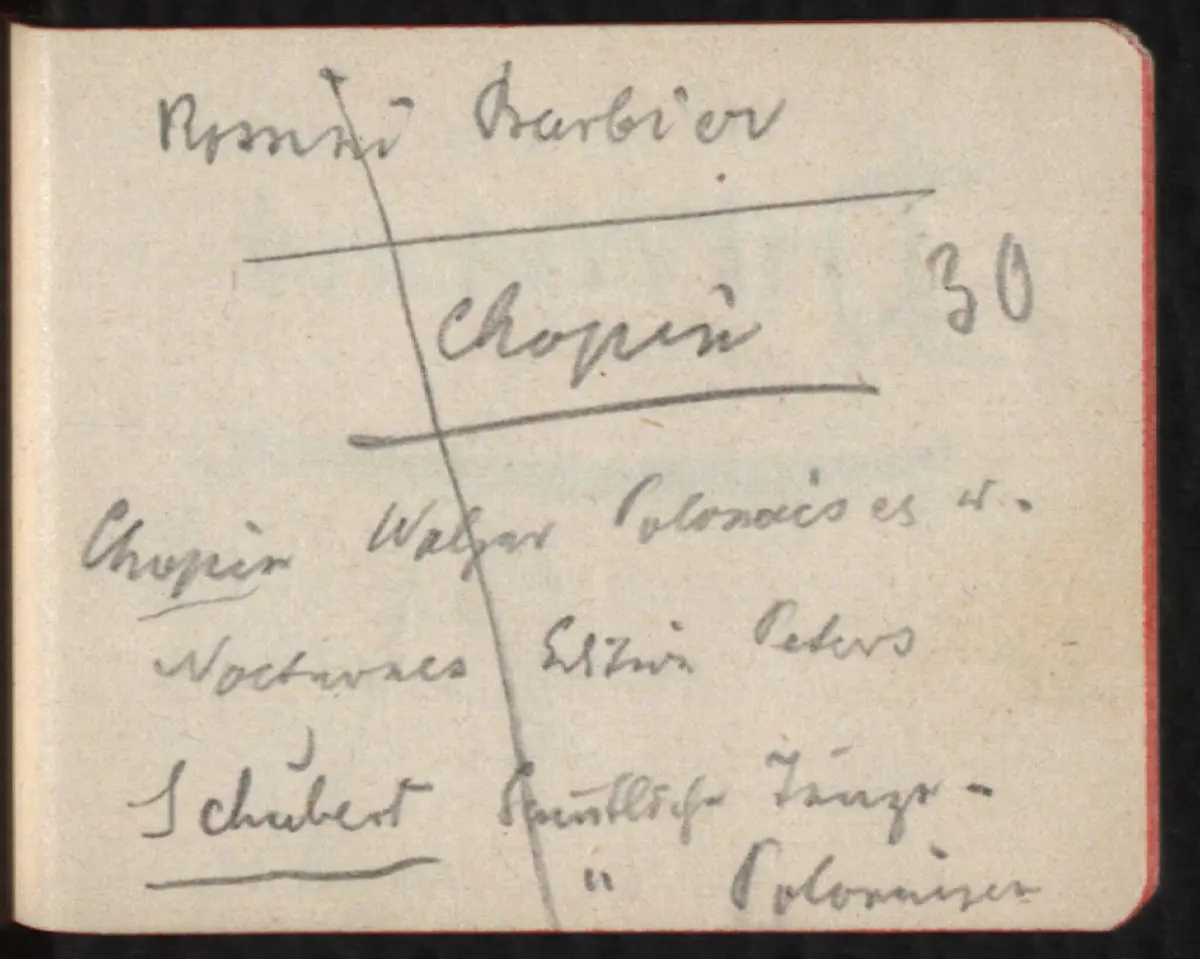 Rossini Barbier
30
Chopin
Chopin Walzer Polonaises u.
Nocturnes Edition Peters
Schubert Sämtliche Tänze -
" Polonaisen